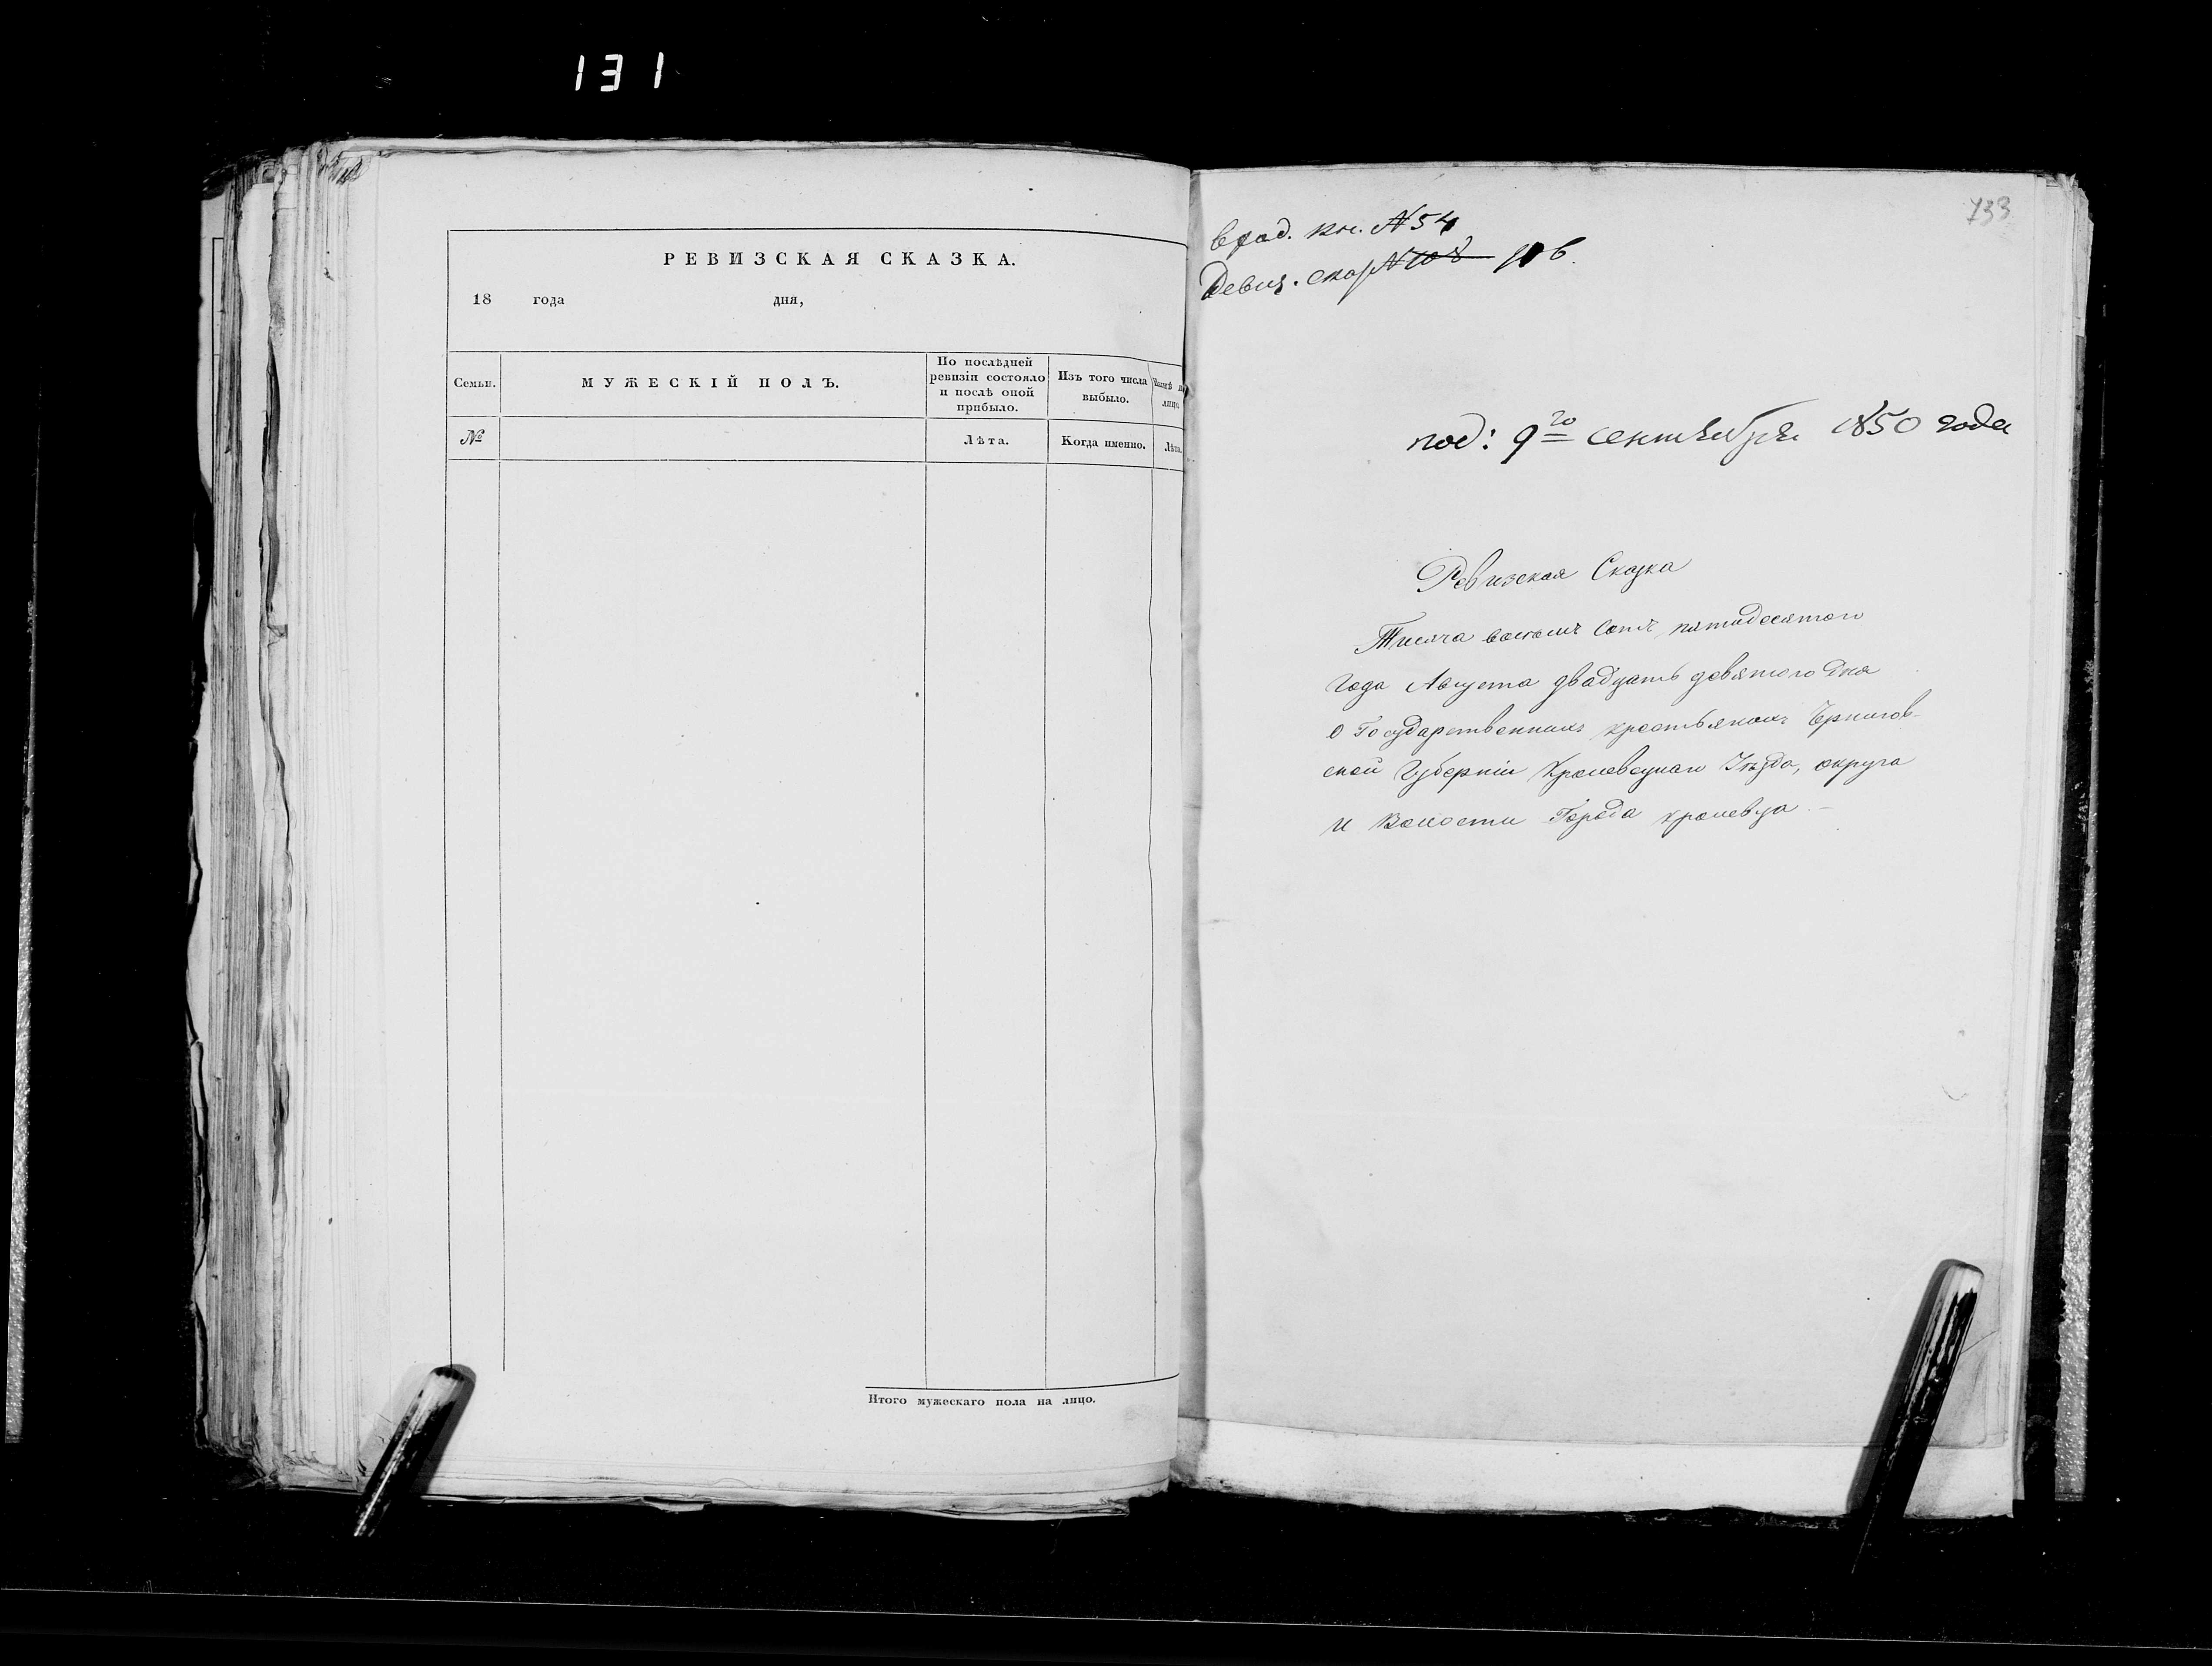 131
РЕВИЗСКАЯ СКАЗКА.
18 года дня,
Семьи.
МУЖЕСКІЙ ПОЛЪ.
По послѣдней
ревизіи состояло
и послѣ оной
прибыло.
Изъ того числа
выбыло.
лицо.
№
Лѣта.
Когда именно.
Лѣта.
Итого мужескаго пола на лицо.
733
кн. №54
№
под: 9го сентября 1850 года
Ревизская Сказка
Тисяча восемъ сотъ пятидесятого
года Августа двадцать девятого дня
о Государственныхъ крестьянахъ Чернигов-
ской Губерніи Кролевецкаго Уѣзда, округа
и Волости Города кролевца —